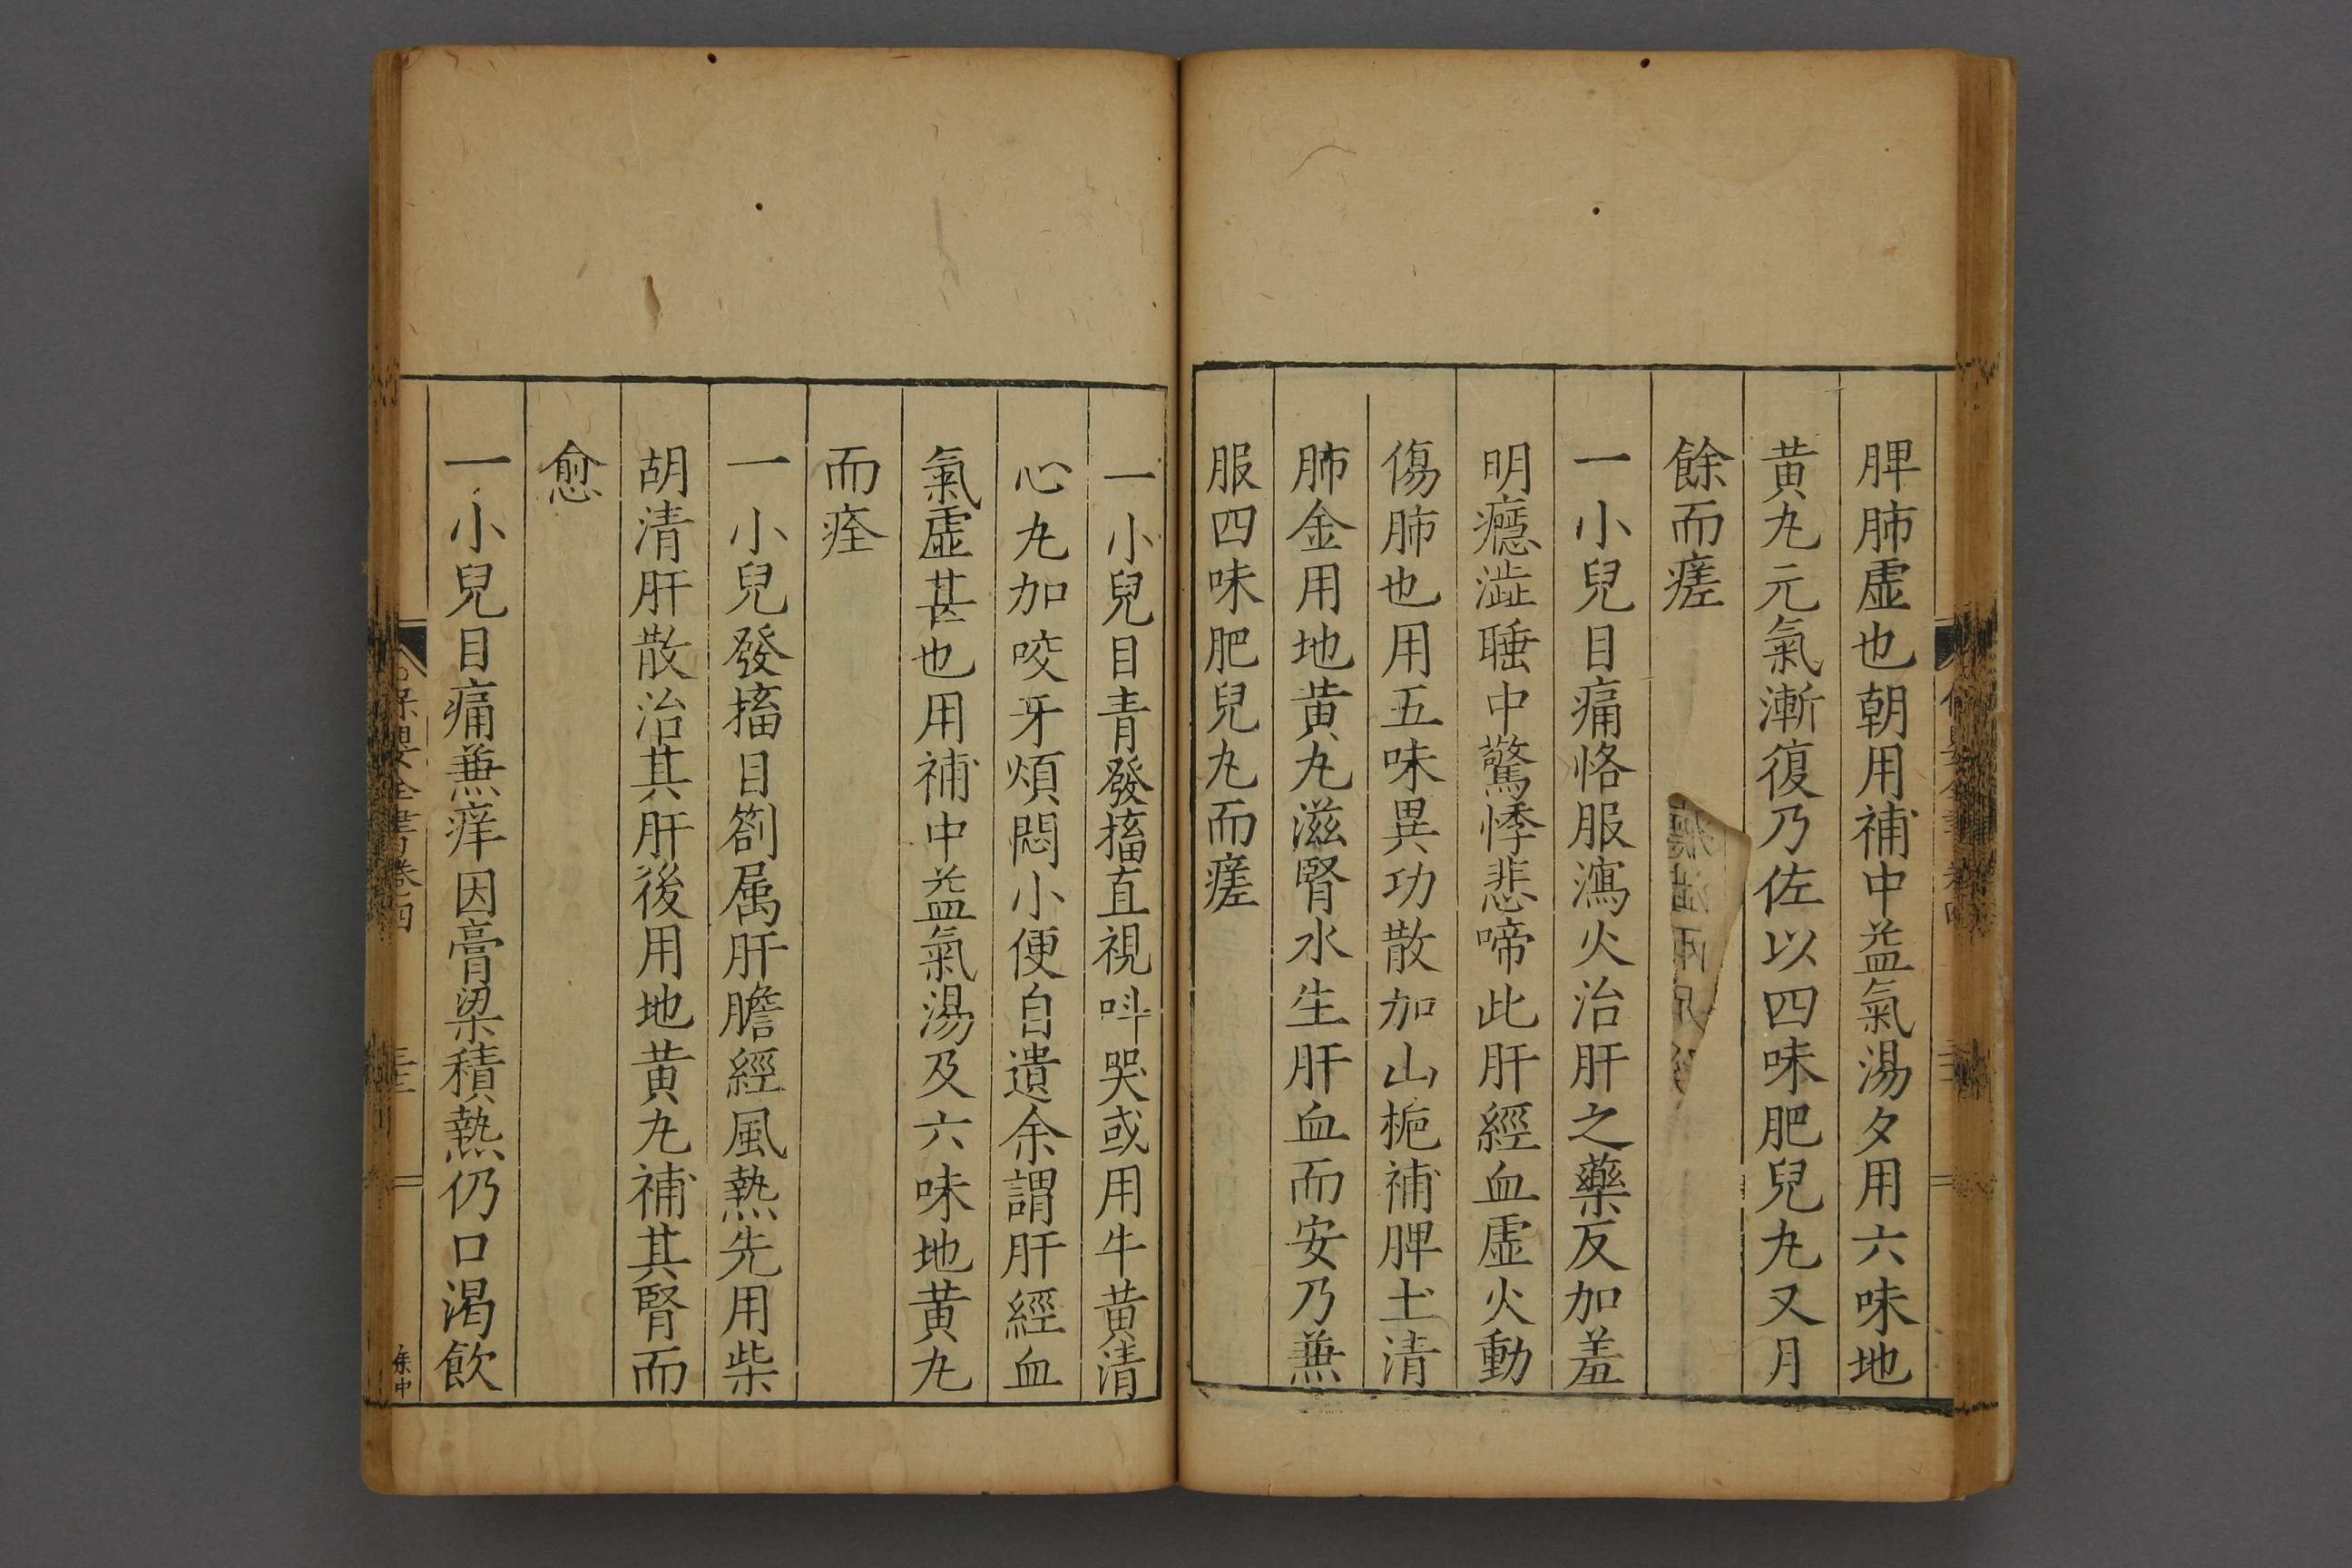 脾肺虛也朝用補中益氣湯夕用六味地
黃丸元氣漸復乃佐以四味肥兒丸又月
餘而瘥
一小兒目痛恪服瀉火治肝之藥反加羞
明癮澁睡中驚悸悲啼此肝經血虛火動
傷肺也用五味異功散加山梔補脾土清
肺金用地黃丸滋腎水生肝血而安乃兼
服四味肥兒丸而瘥
一小兒目青發搐直視呌哭或用牛黃清
心丸加咬牙煩悶小便自遺余謂肝經血
氣虛甚也用補中益氣湯及六味地黃丸
而痊
一小兒發搐目劄属肝膽經風熱先用柴
胡清肝散治其肝後用地黃丸補其腎而
愈
一小兒目痛兼痒因膏粱積熱仍口渴飲
保嬰全書卷四